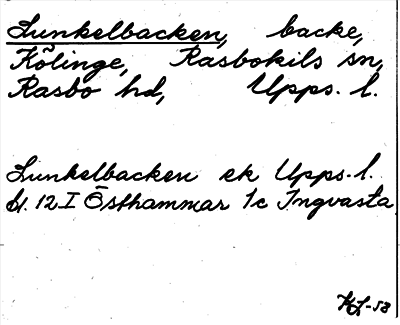 Lunkelbacken, backe,
Kölinge, Rasbokils sn,
Rasbo hd, Upps. l.
Lunkelbacken ek Upps. l.
bl. 12 I Östhammar 1c Ingvasta